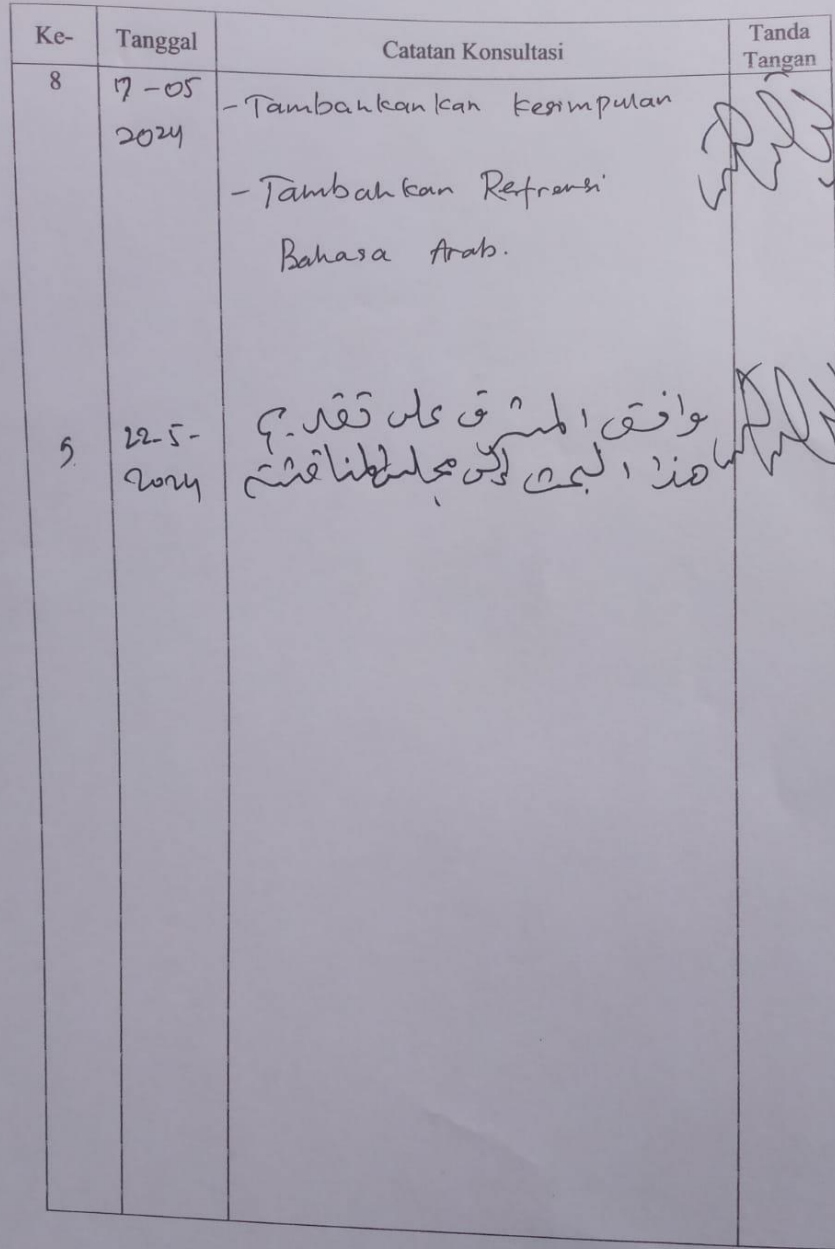 Ke- Tanggal Catatan Konsultasi Tanda Tangan
8 17-05 2024 - Tambahkankan kesimpulan
- Tambahkan Refrensi
Bahasa Arab.
9 22-5-2024 يوافق المشرف على تقديم
هذا البحث إلى مجلس المناقشة